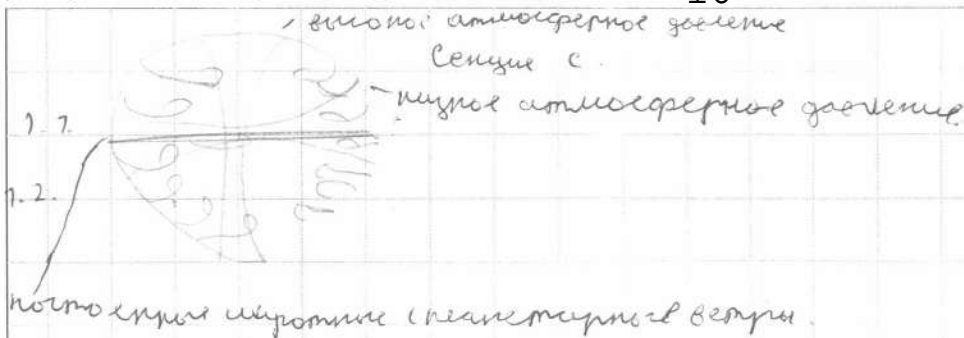 высоное атмосферное давление
Секция С.
низкое атмосферное давление.
1.1.
1.2.
постоянные широтные (планетарные ветры.